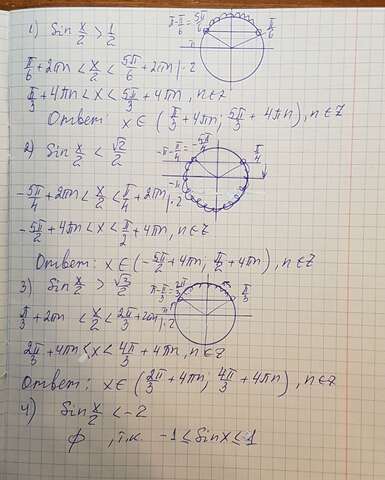 1) Sin x/2 > 1/2
π - π/6 = 5π/6
π/6
π/6 + 2πn < x/2 < 5π/6 + 2πn |·2
π/3 + 4πn < x < 5π/3 + 4πn, n∈Z
Ответ: x ∈ (π/3 + 4πn; 5π/3 + 4πn), n∈Z
2) Sin x/2 < √2/2
-π - π/4 = -5π/4
π/4
-π
-5π/4 + 2πn < x/2 < π/4 + 2πn |·2
-5π/2 + 4πn < x < π/2 + 4πn, n∈Z
Ответ: x ∈ (-5π/2 + 4πn; π/2 + 4πn), n∈Z
3) Sin x/2 > √3/2
π - π/3 = 2π/3
π/3
π/3 + 2πn < x/2 < 2π/3 + 2πn |·2
2π/3 + 4πn < x < 4π/3 + 4πn, n∈Z
Ответ: x ∈ (2π/3 + 4πn; 4π/3 + 4πn), n∈Z
4) Sin x/2 < -2
∅, т.к. -1 ≤ Sin x ≤ 1